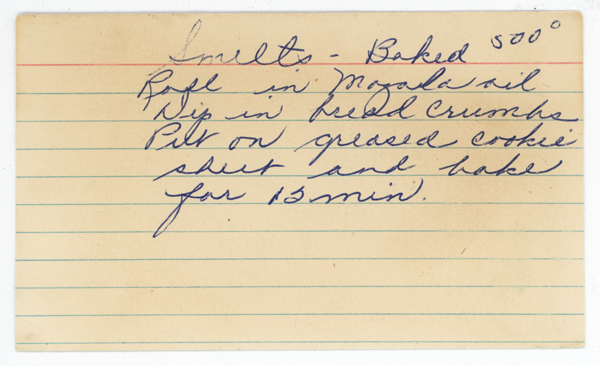 Smelts - Baked 500°
Roll in Mazola oil
Dip in bread crumbs
Put on greased cookie
sheet and bake
for 15 min.